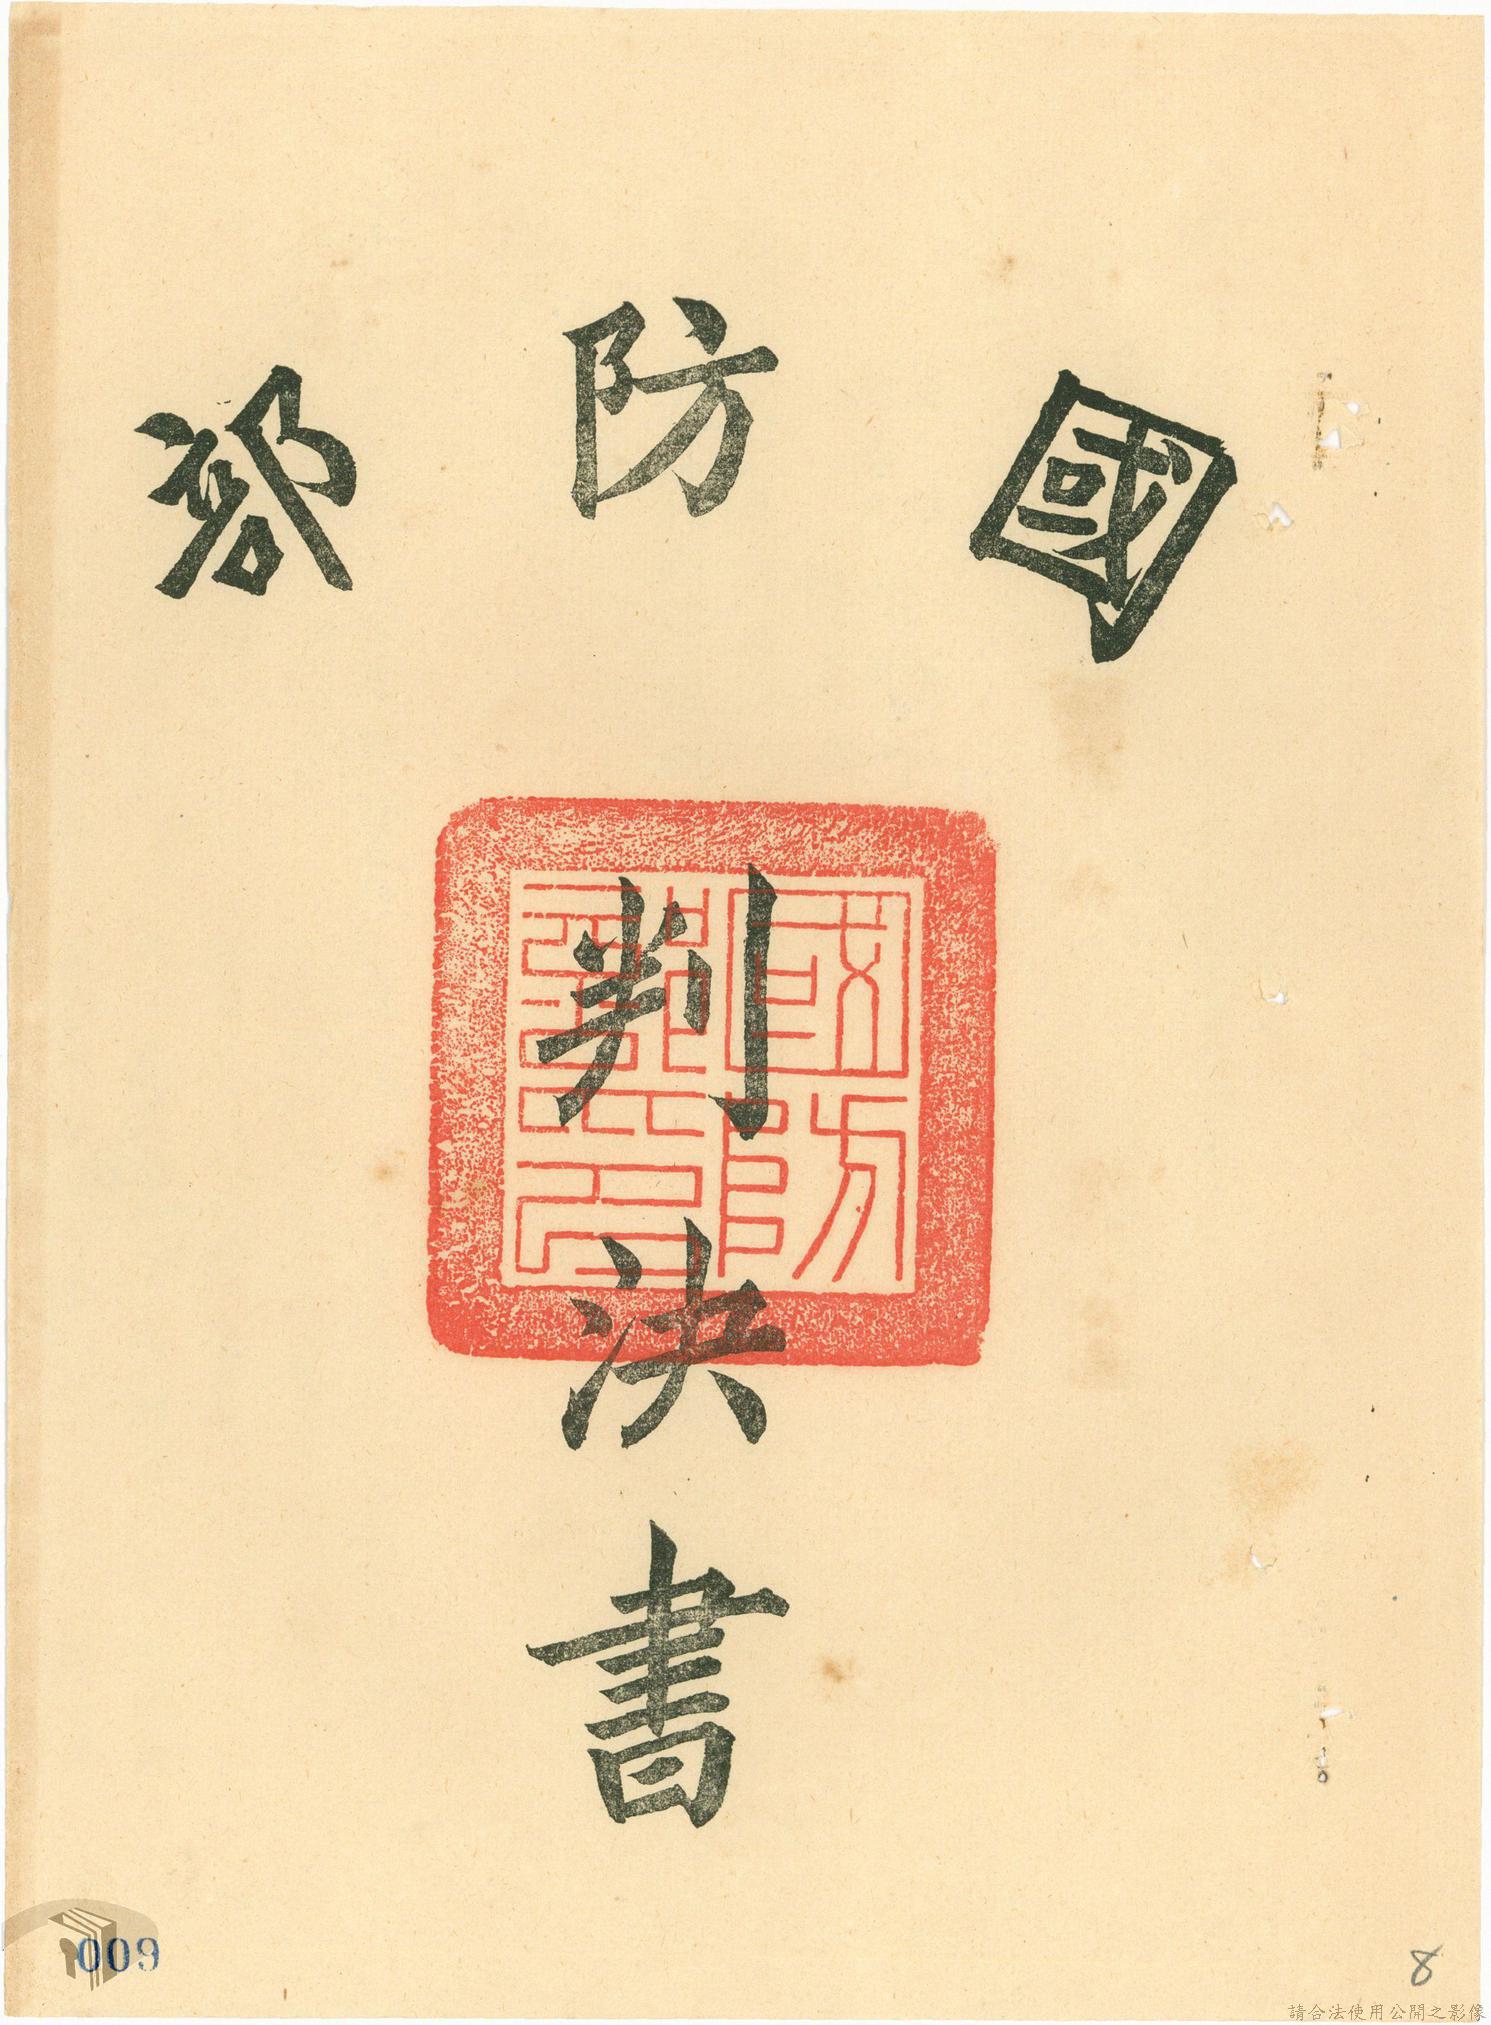 國防部
判決書
國防部印
009
8
請合法使用公開之影像